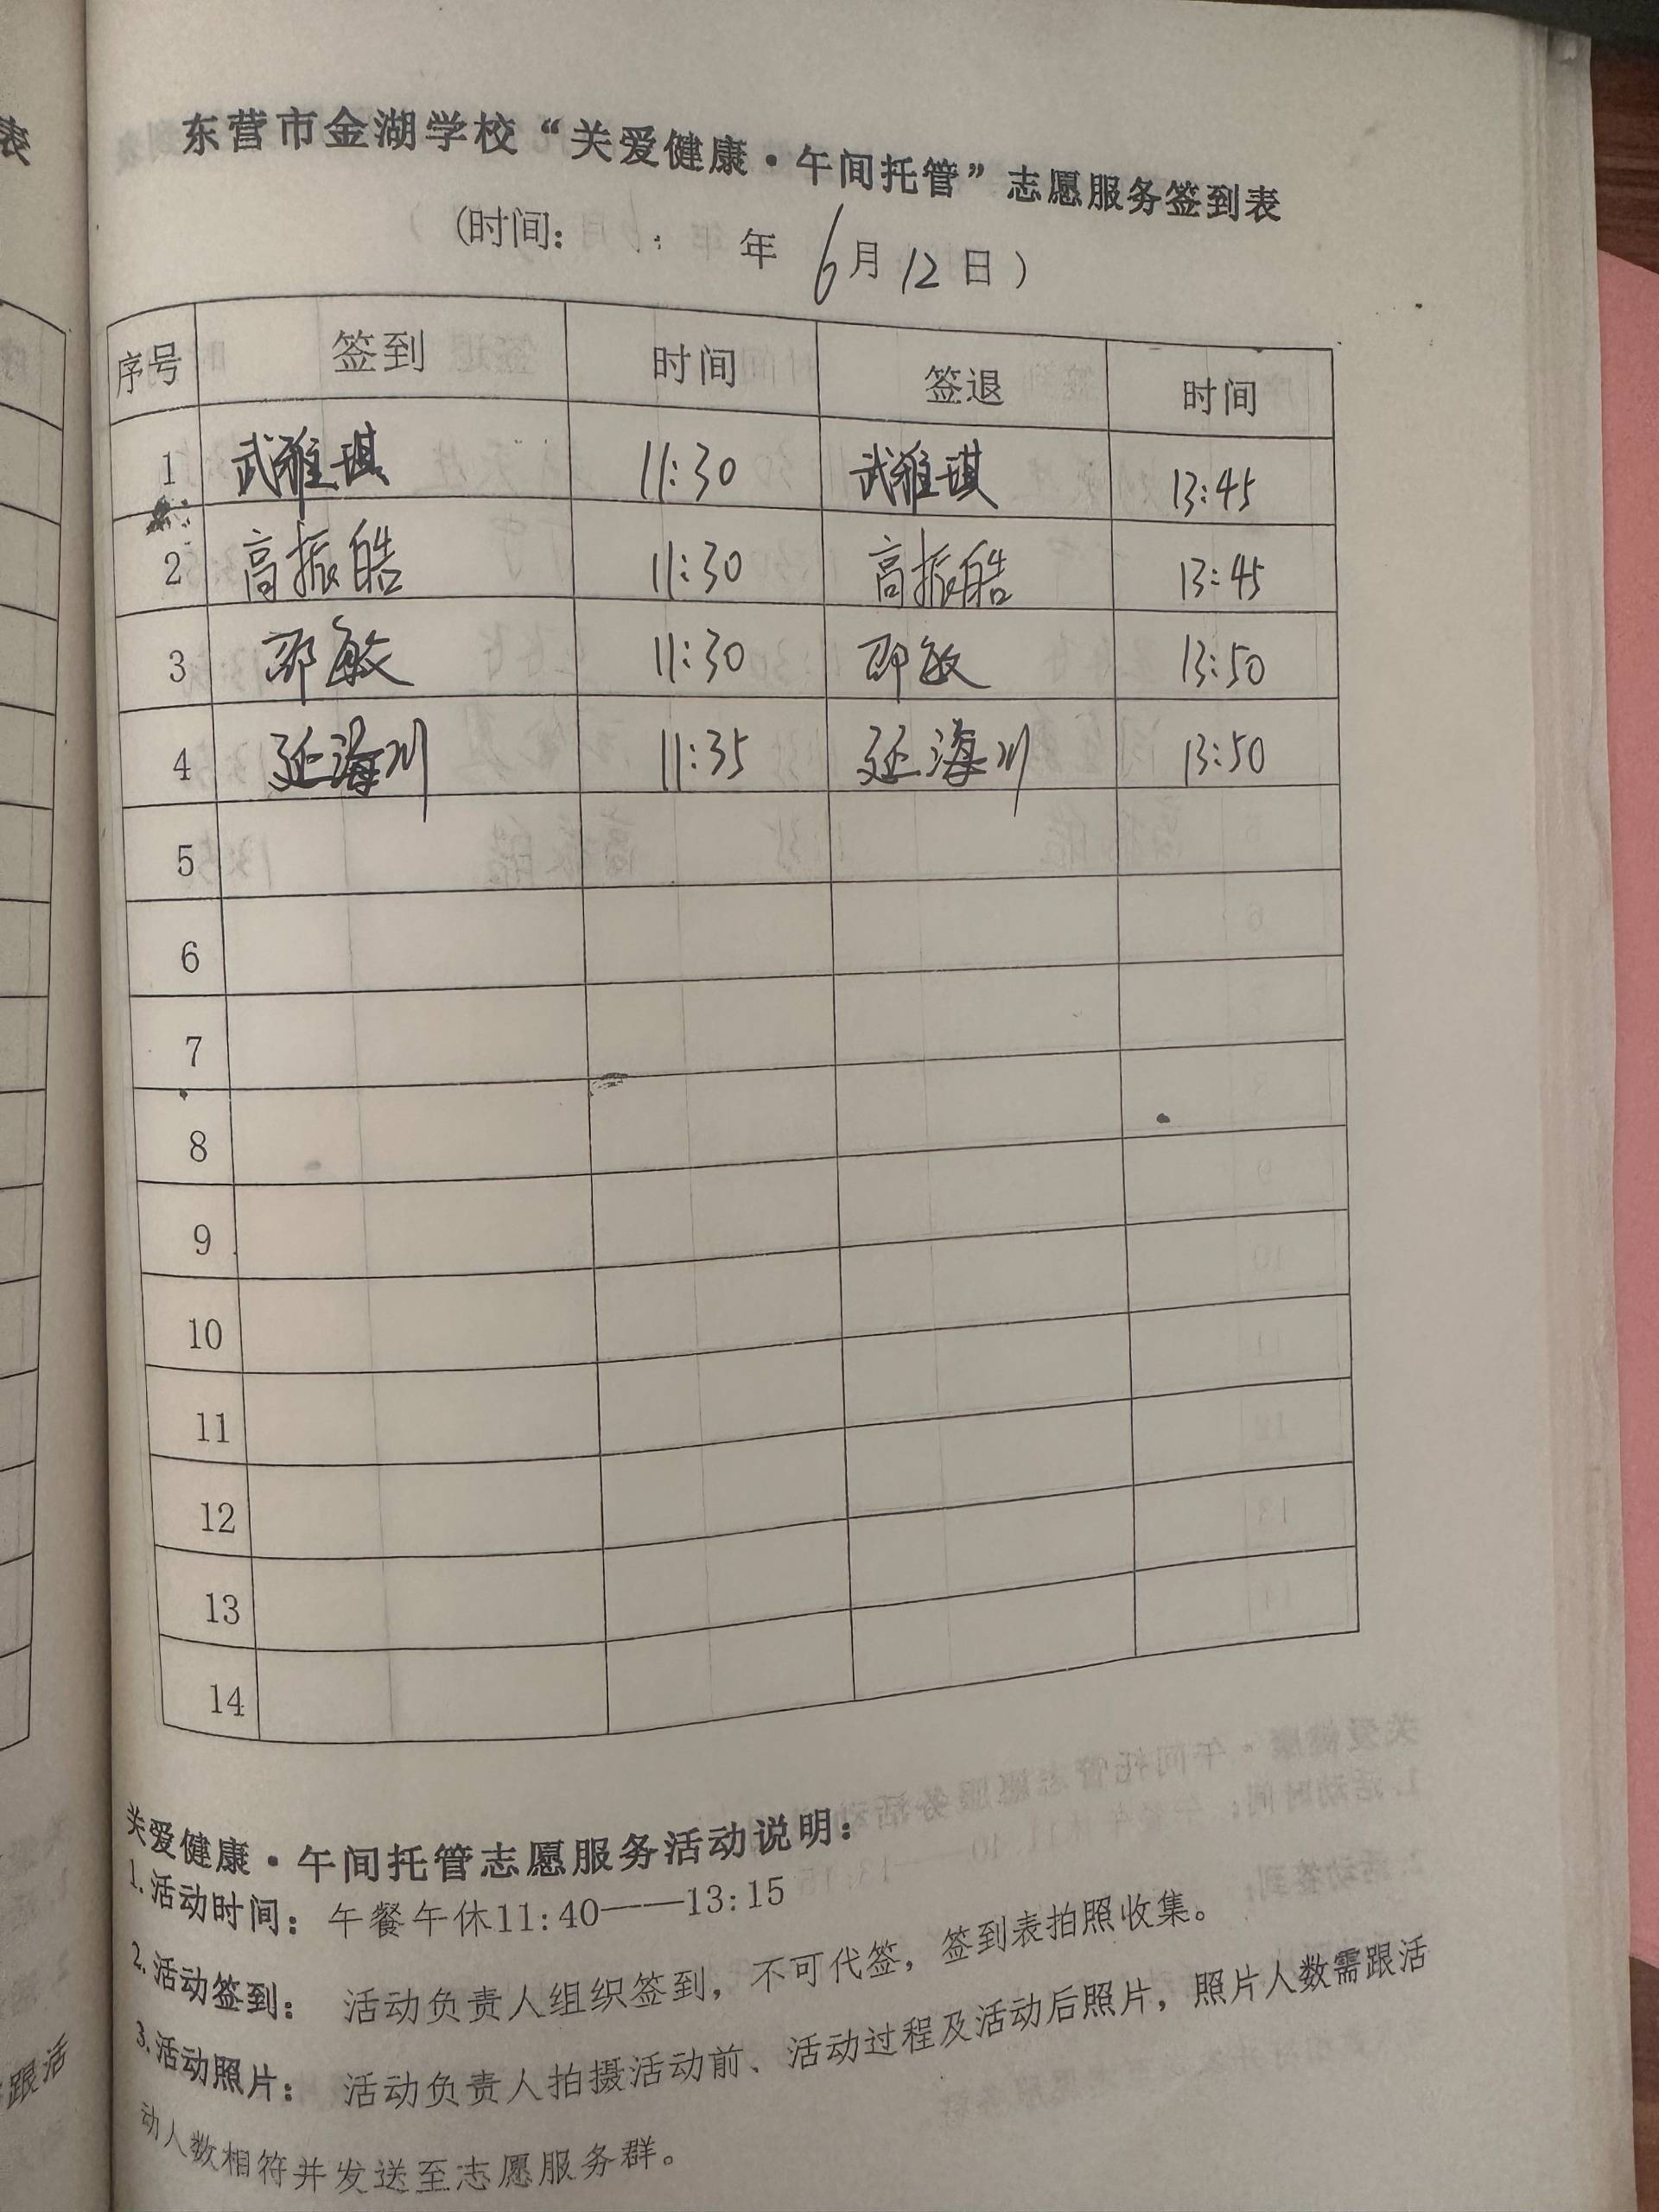 东营市金湖学校“关爱健康·午间托管”志愿服务签到表
(时间: 年 6月12日)
序号 签到 时间 签退 时间
1 武雅琪 11:30 武雅琪 13:45
2 高振皓 11:30 高振皓 13:45
3 邵敏 11:30 邵敏 13:50
4 延海川 11:35 延海川 13:50
5
6
7
8
9
10
11
12
13
14
关爱健康·午间托管志愿服务活动说明:
1.活动时间: 午餐午休11:40——13:15
2.活动签到: 活动负责人组织签到,不可代签,签到表拍照收集。
3.活动照片: 活动负责人拍摄活动前、活动过程及活动后照片,照片人数需跟活
动人数相符并发送至志愿服务群。
表
跟活